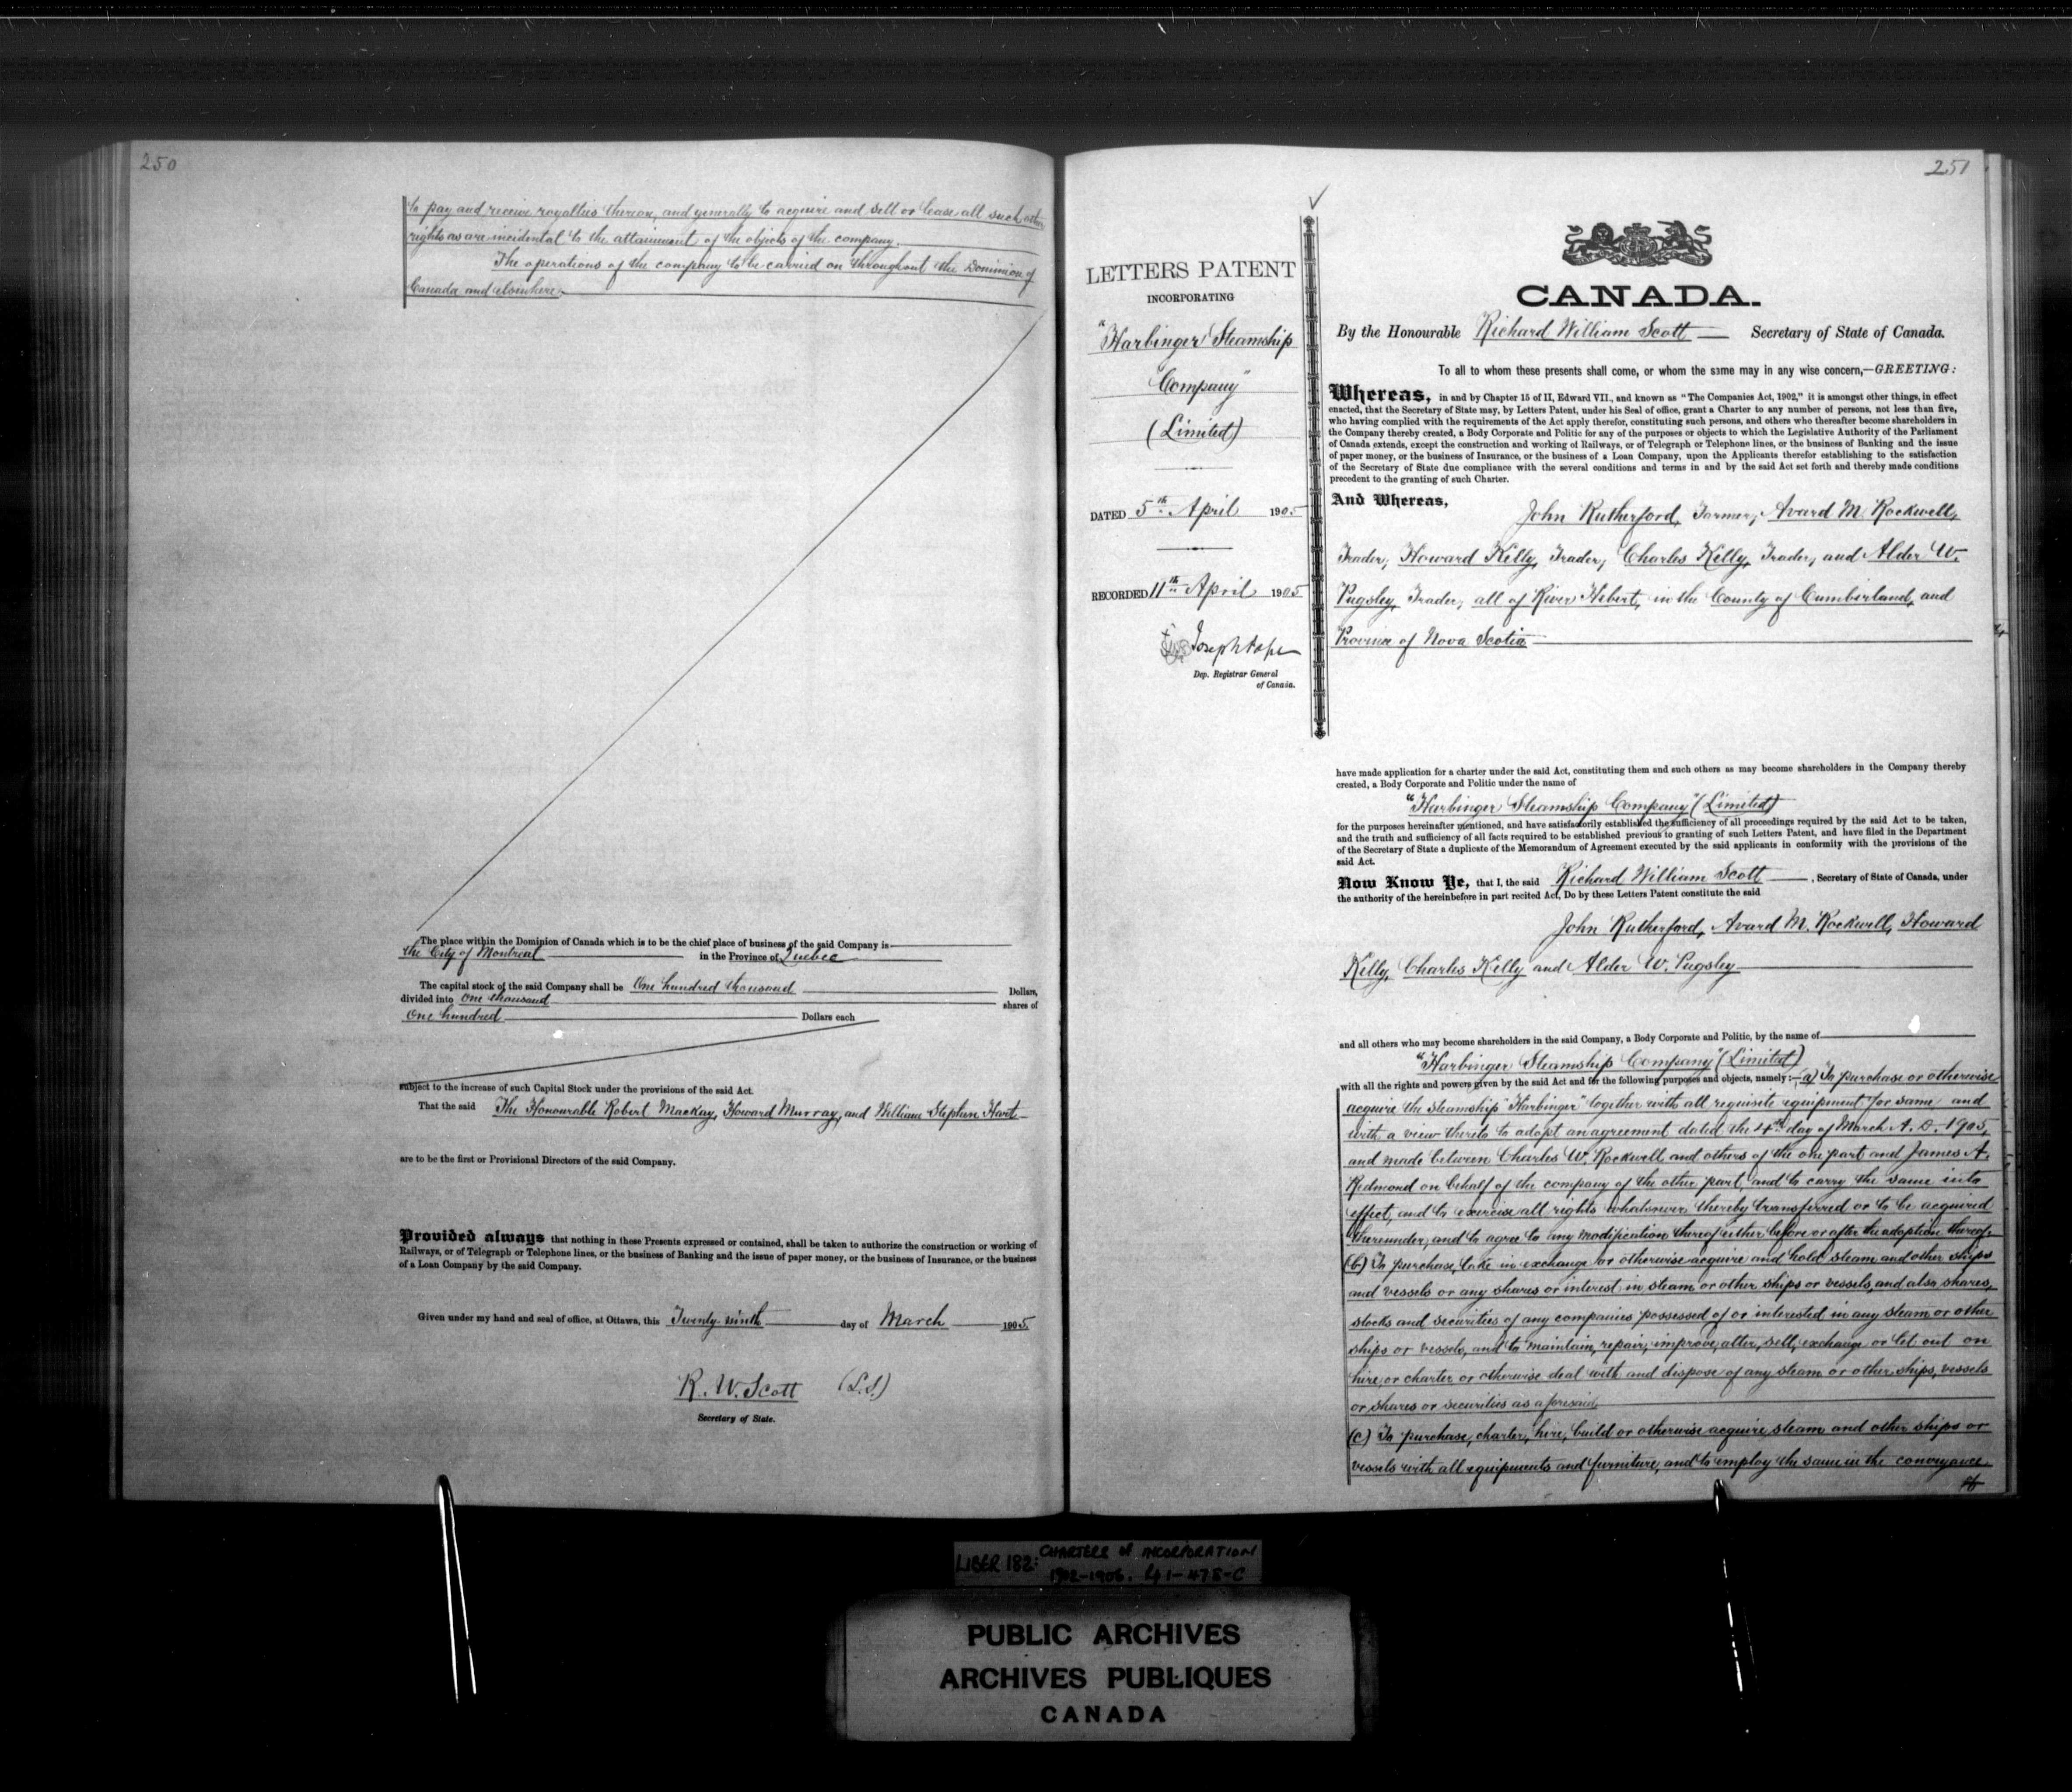 250
to pay and receive royalties thereon, and generally to acquire and sell or lease all such other
rights as are incidental to the attainment of the objects of the company.
The operations of the company to be carried on throughout the Dominion of
Canada and elsewhere.
The place within the Dominion of Canada which is to be the chief place of business of the said Company is
the City of Montreal in the Province of Quebec
The capital stock of the said Company shall be One hundred thousand Dollars,
divided into One thousand shares of
One hundred Dollars each
subject to the increase of such Capital Stock under the provisions of the said Act.
That the said The Honourable Robert MacKay, Howard Murray, and William Stephen Hart
are to be the first or Provisional Directors of the said Company.
Provided always that nothing in these Presents expressed or contained, shall be taken to authorize the construction or working of
Railways, or of Telegraph or Telephone lines, or the business of Banking and the issue of paper money, or the business of Insurance, or the business
of a Loan Company by the said Company.
Given under my hand and seal of office, at Ottawa, this Twenty-ninth day of March 1905
R. W. Scott (L.S.)
Secretary of State.
251
LETTERS PATENT
INCORPORATING
"Harbinger Steamship
Company"
(Limited)
DATED 5th April 1905
RECORDED 11th April 1905
Joseph Pope
Dep. Registrar General
of Canada.
CANADA.
By the Honourable Richard William Scott Secretary of State of Canada.
To all to whom these presents shall come, or whom the same may in any wise concern,—GREETING:
Whereas, in and by Chapter 15 of II, Edward VII., and known as "The Companies Act, 1902," it is amongst other things, in effect
enacted, that the Secretary of State may, by Letters Patent, under his Seal of office, grant a Charter to any number of persons, not less than five,
who having complied with the requirements of the Act apply therefor, constituting such persons, and others who thereafter become shareholders in
the Company thereby created, a Body Corporate and Politic for any of the purposes or objects to which the Legislative Authority of the Parliament
of Canada extends, except the construction and working of Railways, or of Telegraph or Telephone lines, or the business of Banking and the issue
of paper money, or the business of Insurance, or the business of a Loan Company, upon the Applicants therefor establishing to the satisfaction
of the Secretary of State due compliance with the several conditions and terms in and by the said Act set forth and thereby made conditions
precedent to the granting of such Charter.
And Whereas,
John Rutherford, Farmer, Avard M. Rockwell,
Trader, Howard Kelly, Trader, Charles Kelly, Trader, and Alder W.
Pugsley, Trader, all of River Hebert, in the County of Cumberland, and
Province of Nova Scotia
have made application for a charter under the said Act, constituting them and such others as may become shareholders in the Company thereby
created, a Body Corporate and Politic under the name of
"Harbinger Steamship Company" (Limited)
for the purposes hereinafter mentioned, and have satisfactorily established the sufficiency of all proceedings required by the said Act to be taken,
and the truth and sufficiency of all facts required to be established previous to granting of such Letters Patent, and have filed in the Department
of the Secretary of State a duplicate of the Memorandum of Agreement executed by the said applicants in conformity with the provisions of the
said Act.
Now Know Ye, that I, the said Richard William Scott, Secretary of State of Canada, under
the authority of the hereinbefore in part recited Act, Do by these Letters Patent constitute the said
John Rutherford, Avard M. Rockwell, Howard
Kelly, Charles Kelly and Alder W. Pugsley
and all others who may become shareholders in the said Company, a Body Corporate and Politic, by the name of
"Harbinger Steamship Company" (Limited)
with all the rights and powers given by the said Act and for the following purposes and objects, namely:—a) To purchase or otherwise
acquire the steamship "Harbinger" together with all requisite equipment for same and
with a view thereto to adopt an agreement dated the 4th day of March A. D. 1905,
and made between Charles W. Rockwell and others of the one part and James A.
Redmond on behalf of the company of the other part, and to carry the same into
effect, and to exercise all rights whatsoever thereby transferred or to be acquired
thereunder, and to agree to any modification thereof either before or after the adoption thereof.
(b) To purchase, take in exchange or otherwise acquire and hold steam and other ships
and vessels or any shares or interest in steam or other ships or vessels, and also shares,
stocks and securities of any companies possessed of or interested in any steam or other
ships or vessels, and to maintain, repair, improve, alter, sell, exchange or let out on
hire, or charter or otherwise deal with and dispose of any steam or other ships, vessels
or shares or securities as aforesaid.
(c) To purchase, charter, hire, build or otherwise acquire steam and other ships or
vessels with all equipments and furniture, and to employ the same in the conveyance
of
LIBER 182: CHARTERS of INCORPORATION
1902-1906. 41-478-C
PUBLIC ARCHIVES
ARCHIVES PUBLIQUES
CANADA